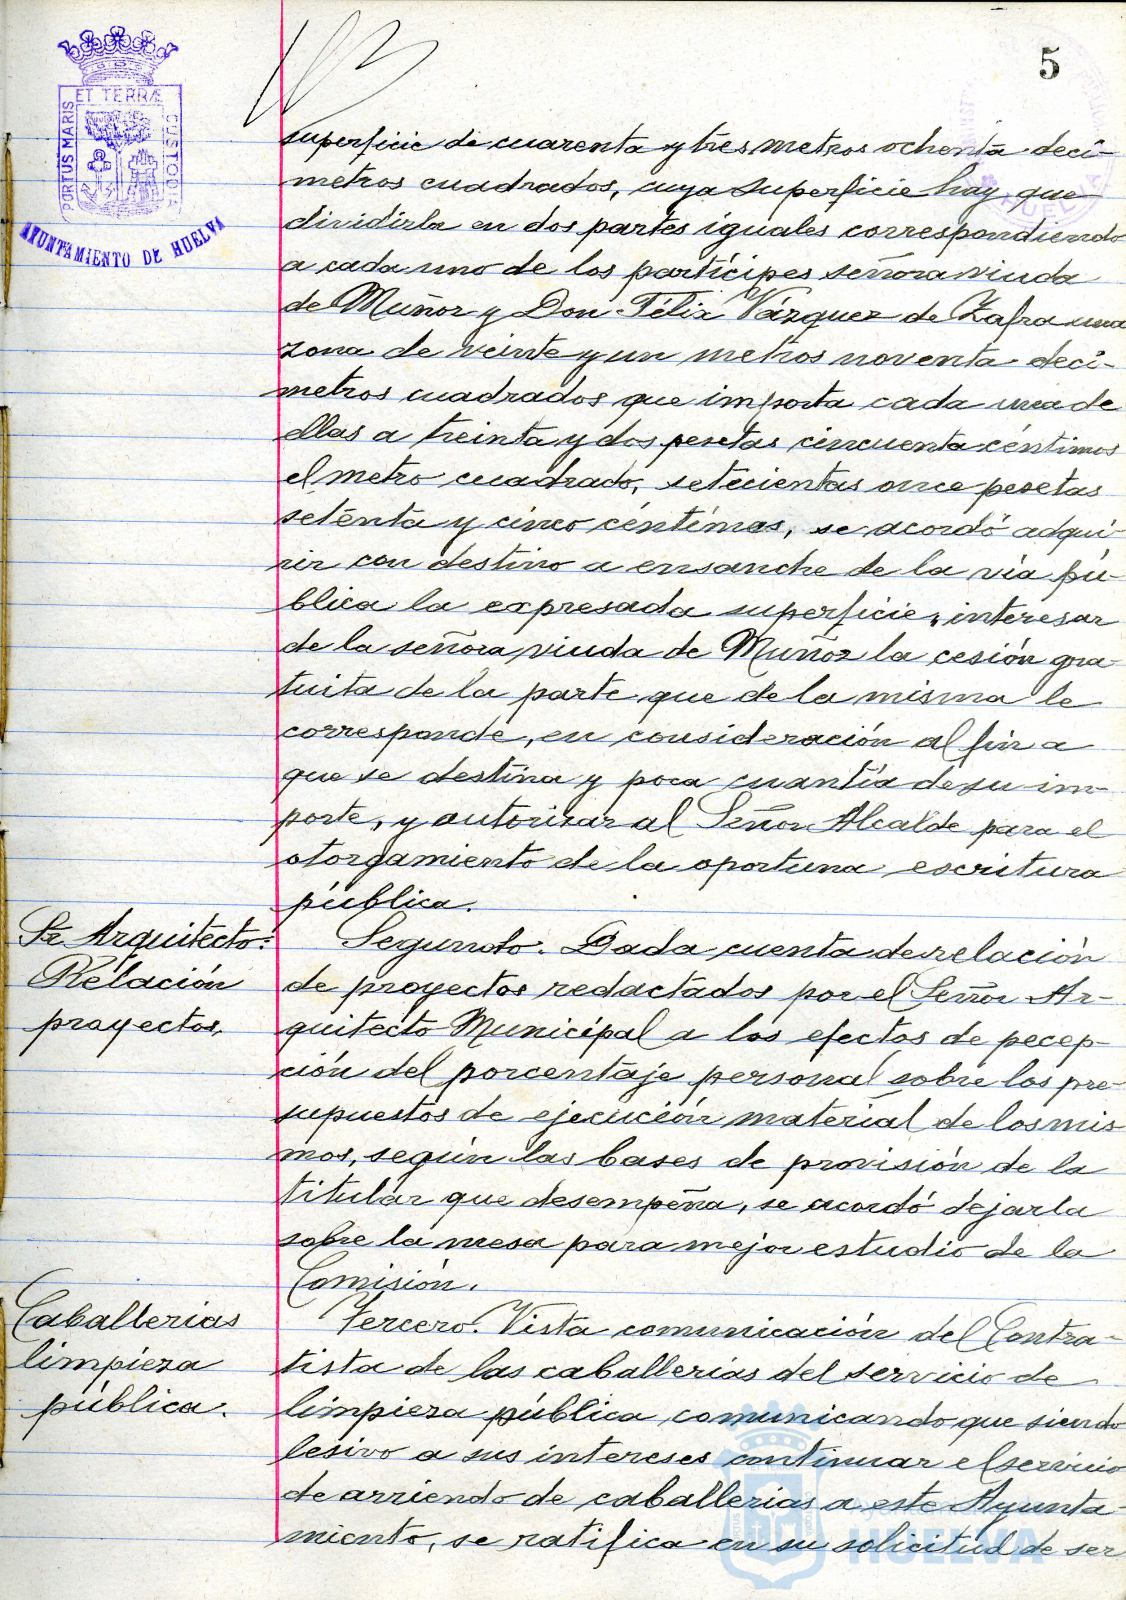 5
PORTUS MARIS ET TERRÆ CUSTODIA
AYUNTAMIENTO DE HUELVA
superficie de cuarenta y tres metros ochenta decí-
metros cuadrados, cuya superficie hay que
dividirla en dos partes iguales correspondiendo
a cada uno de los partícipes señora viuda
de Muñoz y Don Félix Vázquez de Zafra una
zona de veinte y un metros noventa decí-
metros cuadrados que importa cada una de
ellas a treinta y dos pesetas cincuenta céntimos
el metro cuadrado, setecientas once pesetas
setenta y cinco céntimos, se acordó adqui-
rir con destino a ensanche de la vía pú-
blica la expresada superficie, interesar
de la señora viuda de Muñoz la cesión gra-
tuita de la parte que de la misma le
corresponde, en consideración al fin a
que se destina y poca cuantía de su im-
porte, y autorizar al Señor Alcalde para el
otorgamiento de la oportuna escritura
pública.
Sr. Arquitecto:
Relación
proyectos.
Segundo. Dada cuenta de relación
de proyectos redactados por el Señor Ar-
quitecto Municipal a los efectos de pecep-
ción del porcentaje personal sobre los pre-
supuestos de ejecución material de los mis
mos, según las bases de provisión de la
titular que desempeña, se acordó dejarla
sobre la mesa para mejor estudio de la
Comisión.
Caballerias
limpieza
pública.
Tercero. Vista comunicación del Contra-
tista de las caballerias del servicio de
limpieza pública comunicando que siendo
lesivo a sus intereses continuar el servicio
de arriendo de caballerias a este Ayunta-
miento, se ratifica en su solicitud de ser
HUELVA